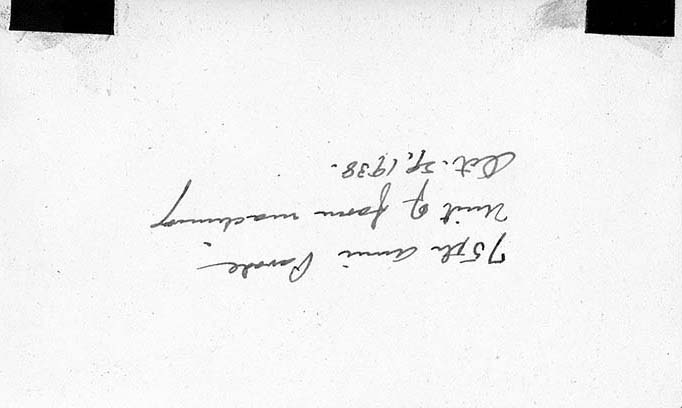 75th Anni Parade –
Unit of farm machinery
Oct. 29, 1938.